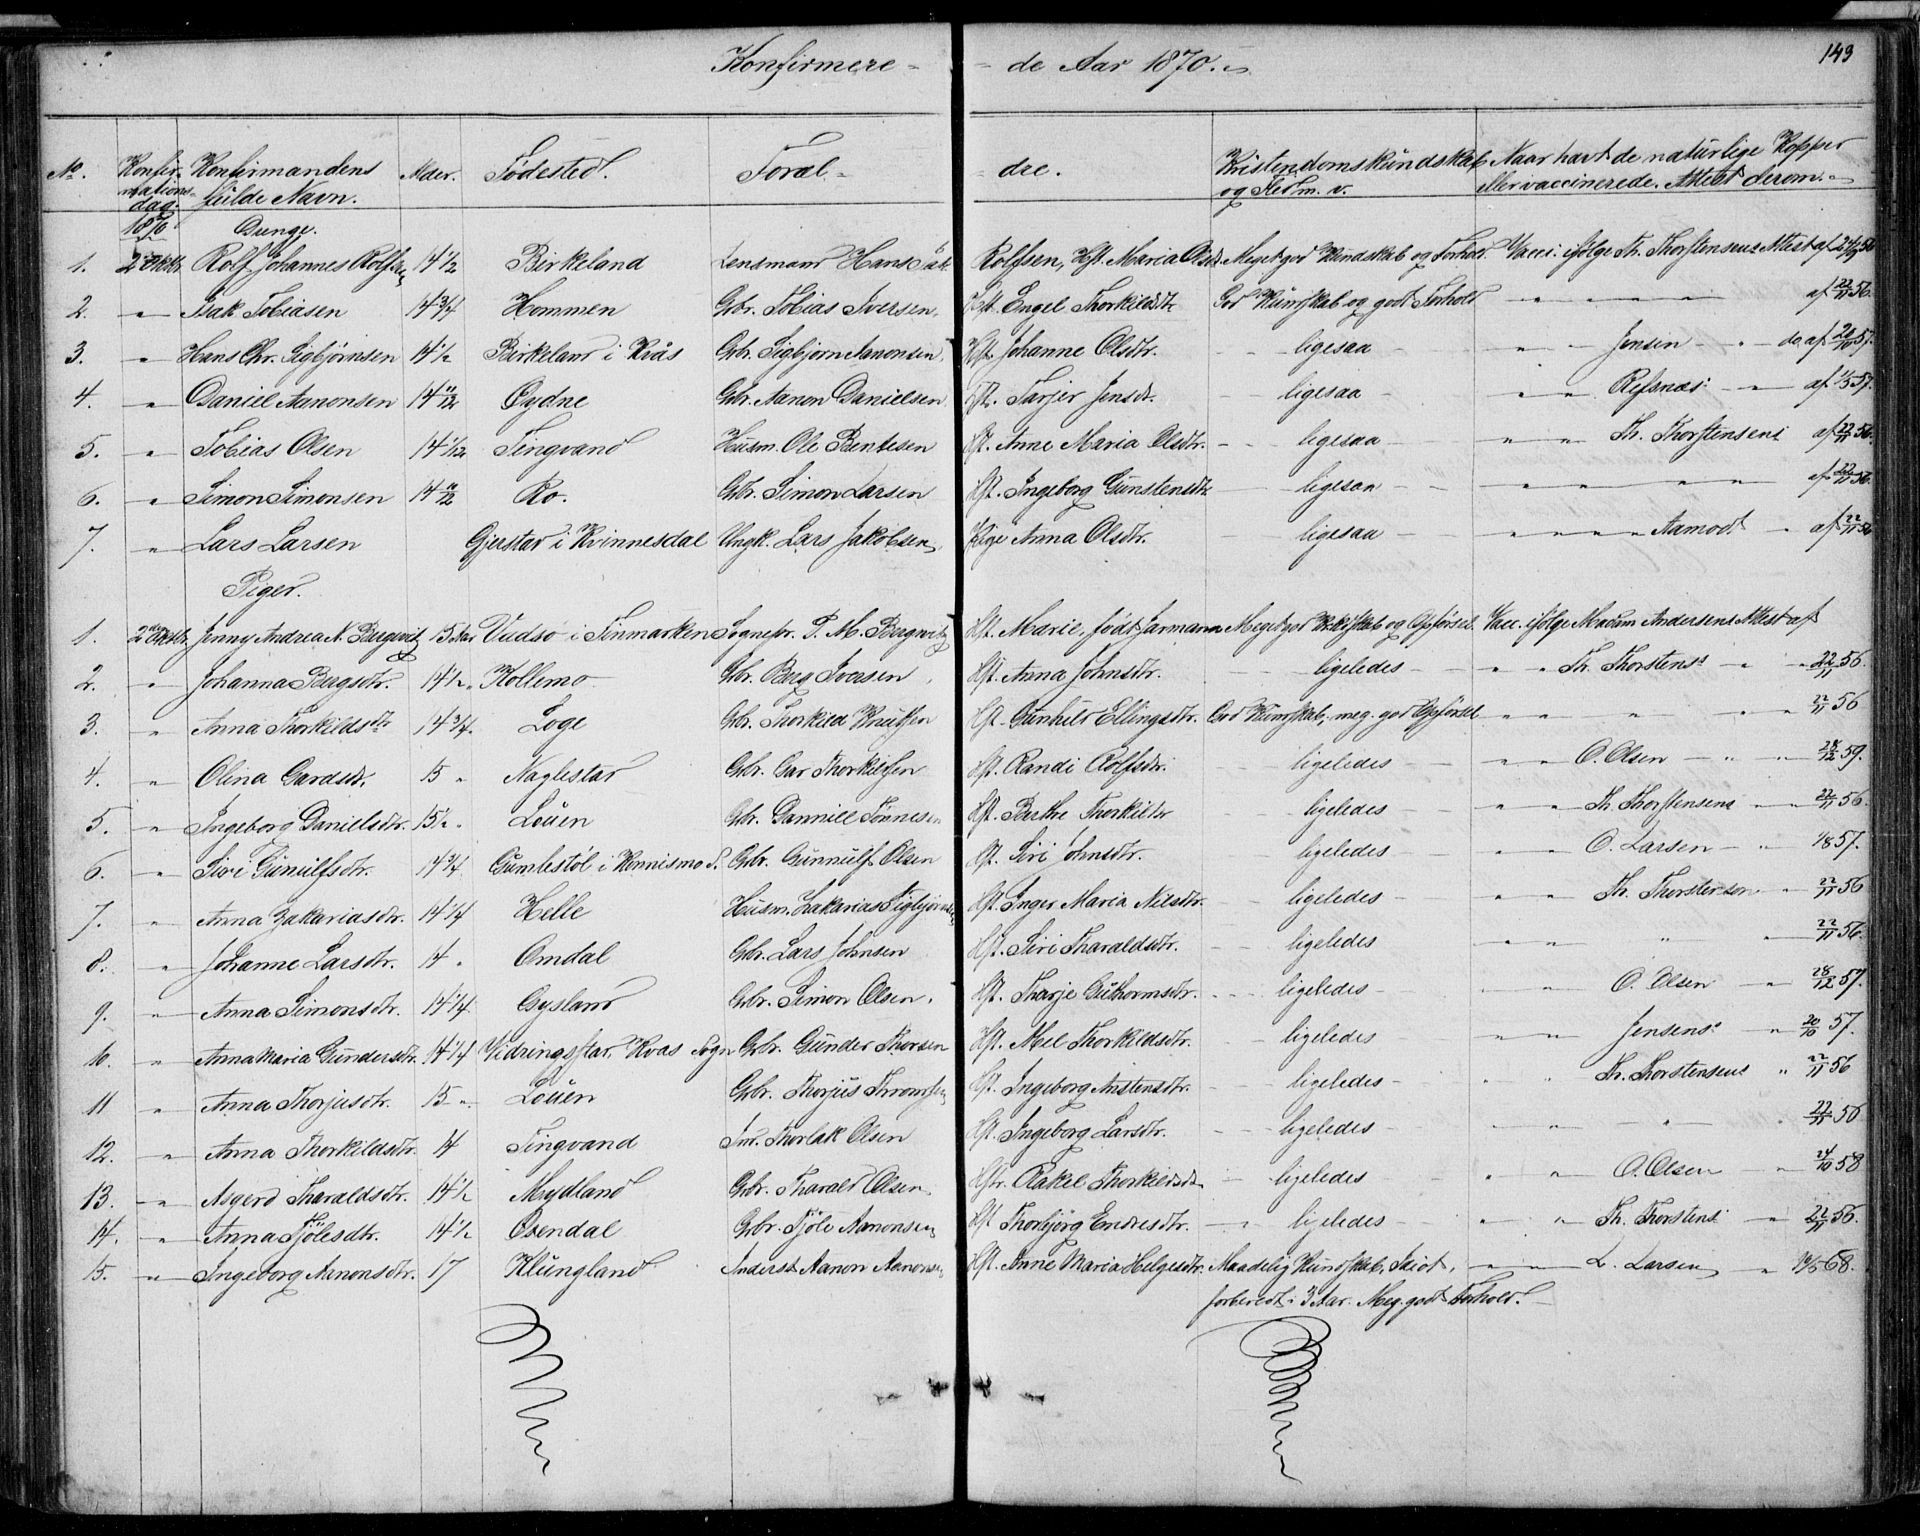 149
Konfirmere - - de Aar 1870.
No. Konfirmations dag. Konfirmandens fulde Navn. Alder. Fødested. Foræl- - dre. Kristendomskundskab og Forh. m. v. Naar havt de naturlige Kopper eller vaccinerede. Attest derom.
1870 Drenge.
1. 2den Oktbr. Rolf Johannes Rolfsen 14 1/2 Birkeland Lensmand Hans Rolfsen, Hst. Maria Olsdr. Meget god Kundskab og Forhold. Vacc. ifølge Th. Thorstensens Attest af 56
2. " Isak Tobiasen 14 3/4 Hommen Gbr. Tobias Iversen. Hst. Engel Thorkildsdtr God Kundskab og godt Forhold " " " " af 22/11 56.
3. " Hans Chr. Sigbjørnsen 14 1/2 Birkeland i Kvås Gbr. Sigbjørn Aanonsen. Hst. Johanne Olsdtr. - ligesaa - " " Jensen - " - do af 20/10 57.
4. " Daniel Aanonsen 14 11/12 Øydne Gbr. Aanon Danielsen Hst. Tarjer Jensd. - ligesaa - " " Refsnæs - " - af 1/5 57.
5. " Tobias Olsen 14 1/12 Tingvand Husm. Ole Bentesen Hst. Anne Maria Olsdtr. - ligesaa - " " Th. Thorstensens af 22/11 56.
6. " Simon Simonsen 14 11/12 Ro. Gbr. Simon Larsen Hst. Ingeborg Gunstensdtr - ligesaa - " " " " " af 22/11 56.
7. " Lars Larsen Gjerstad i Kvinnesdal Ungk. Lars Jakobsen, Pige Anna Olsdtr. - ligesaa - " " " " Aamodt " af 22/11 56
Piger.
1. 2den Oktbr. Jenny Andrea N. Bergwitz 15 Aar Vadsø i Finmarken Sognepr. P. M. Bergwitz Hst. Marie, født Jarmann Meget god Kundskab og Opførsel Vacc. ifølge Madam Andersens Attest af
2. " Johanna Bergsdtr. 14 1/2 " Kollemo Gbr. Berg Iversen, Hst. Anna Johnsdtr. - ligeledes - " " Th. Thorstens. " " 22/11 56.
3. " Anna Thorkildsdtr 14 3/4. Loge Gbr. Thorkild Knutsen Hst. Gunhild Ellingsdtr. God Kundskab; meg. god Opførsel " " " " " 22/11 56
4. " Olina Gardsdr. 15 " Naglestad Gbr. Gar Thorkildsen Hst. Randi Rolfsdr. - ligeledes - " " O. Olsen - " " 28/12 59.
5. " Ingeborg Danielsdtr. 15 1/2 " Løuen Gbr. Danniel Tønnesen Hst. Berthe Thorkildsdr - ligeledes - " " Th. Thorstensens " " 22/11 56.
6. " Siri Gunulfsdtr. 14 3/4 Gumlestøl i Konnismo S. Gbr. Gunnulf Olsen Hst. Siri Johnsdtr. - ligeledes - " " O. Larsen - " 1/8 57.
7. " Anna Zakariasdtr. 14 1/4 Helle Husm. Zakarias Sigbjørnsen Hst. Inger Maria Nilsdtr. - ligeledes - " " Th. Thorstensen " 22/11 56
8. " Johanne Larsdtr. 14 " Omdal Gbr. Lars Johnsen Hst. Siri Tharaldsdtr. - ligeledes - " " " " 22/11 56.
9. " Anna Simonsdtr. 14 1/4. Gysland Gbr. Simon Olsen. Hst. Tharje Guthormsdtr. - ligeledes - " " O. Olsen " 28/12 57.
10. " Anna Maria Gundersdtr. 14 1/4 Vidringsstad, Kvas Sogn Gbr. Gunder Thorsen Hst. Mel Thorkildsdtr. - ligeledes - " " Jensens " 20/10 57.
11 " Anna Thorjusdtr. 15 " Løuen Gbr. Thorjus Thromsen Hst. Ingeborg Aristensdtr. - ligeledes - " " Th. Thorstensens " 22/11 56
12. " Anna Thorkildsdtr. 14 Tingvand Ind. Thorlak Olsen Hst. Ingeborg Larsdtr. - ligeledes - " " - " 22/11 56
13. " Asgerd Tharaldsdtr. 14 1/2 Mydland Gbr. Tharald Olsen. Hst. Rakel Thorkildsdr - ligeledes - " " O. Olsen " 24/10 58
14. " Anna Tjølesdtr. 14 1/2 Oxendal Gbr. Tjøle Aanonsen Hst. Thorbjørg Endresdtr. - ligeledes - " " Th. Thorstens. " 22/11 56.
15. " Ingeborg Aanonsdtr. 17 Klungland Inderst Aanon Aanonsen Hst. Anne Maria Helgesdtr. Maadelig Kundskab, Idiot, " " L. Larsen " 19/5 68.
forberedt i 3 Aar. Meg. godt Forhold.